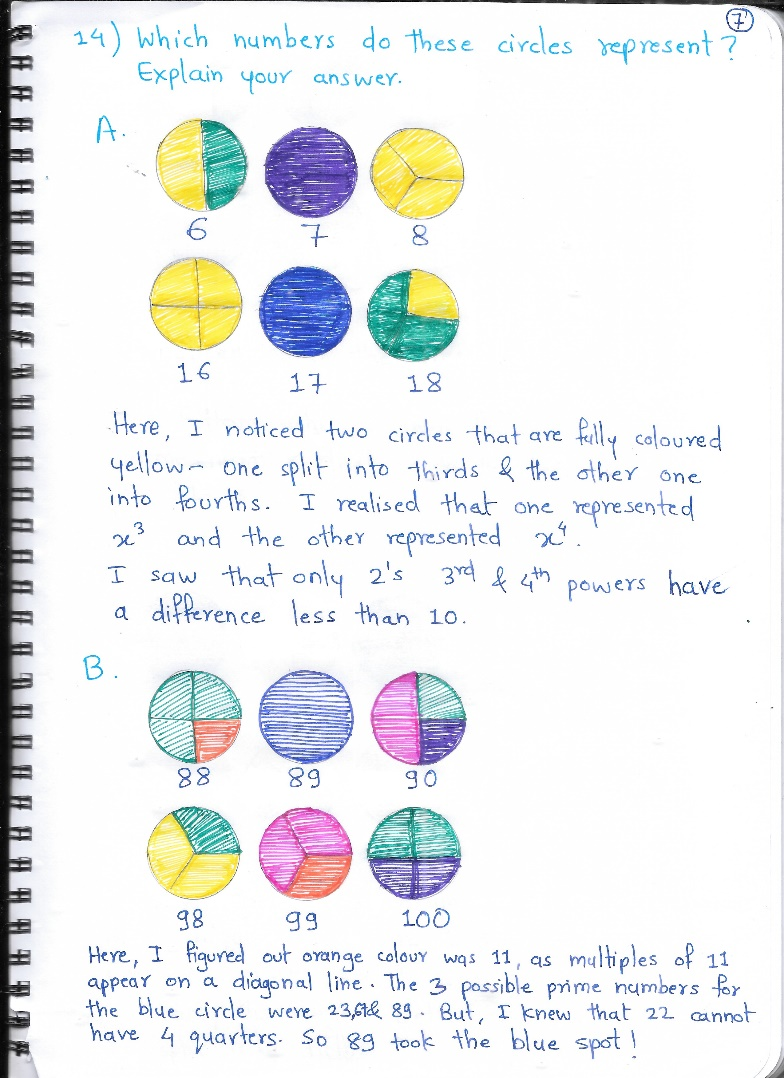 7
14) Which numbers do these circles represent?
Explain your answer.
A.
6 7 8
16 17 18
Here, I noticed two circles that are fully coloured
yellow - one split into thirds & the other one
into fourths. I realised that one represented
x³ and the other represented x⁴.
I saw that only 2's 3rd & 4th powers have
a difference less than 10.
B.
88 89 90
98 99 100
Here, I figured out orange colour was 11, as multiples of 11
appear on a diagonal line. The 3 possible prime numbers for
the blue circle were 23,67& 89. But, I knew that 22 cannot
have 4 quarters. So 89 took the blue spot!